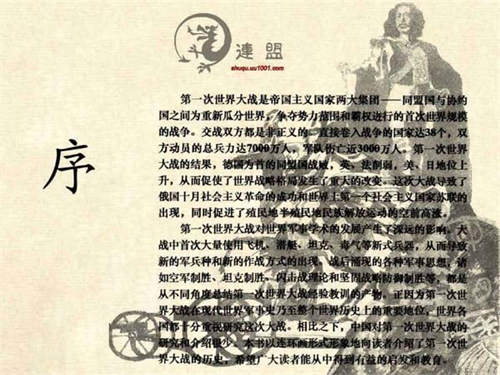 連盟
shuqu.uu1001.com
序
第一次世界大战是帝国主义国家两大集团——同盟国与协约
国之间为重新瓜分世界，争夺势力范围和霸权进行的首次世界规模
的战争。交战双方都是非正义的。直接卷入战争的国家达38个，双
方动员的总兵力达7000万人，军队伤亡近3000万人。第一次世界大
战的结果，德国为首的同盟国战败，英、法削弱，美、日地位上
升，从而促使了世界战略格局发生了重大的改变。这次大战导致了
俄国十月社会主义革命的成功和世界上第一个社会主义国家苏联的
出现，同时促进了殖民地半殖民地民族解放运动的空前高涨。
第一次世界大战对世界军事学术的发展产生了深远的影响。大
战中首次大量使用飞机、潜艇、坦克、毒气等新式兵器，从而导致
新的军兵种和新的作战方式的出现。战后涌现的各种军事思想，诸
如空军制胜、坦克制胜、闪击战理论和坚固战略防御制胜等，都是
从不同角度总结第一次世界大战经验教训的产物。正因为第一次世
界大战在现代世界军事史乃至整个世界历史上的重要地位，世界各
国都十分重视研究这次大战。相比之下，中国对第一次世界大战的
研究和介绍很少。本书以连环画形式形象地向读者介绍了第一次世
界大战的历史，希望广大读者能从中得到有益的启发和教育。